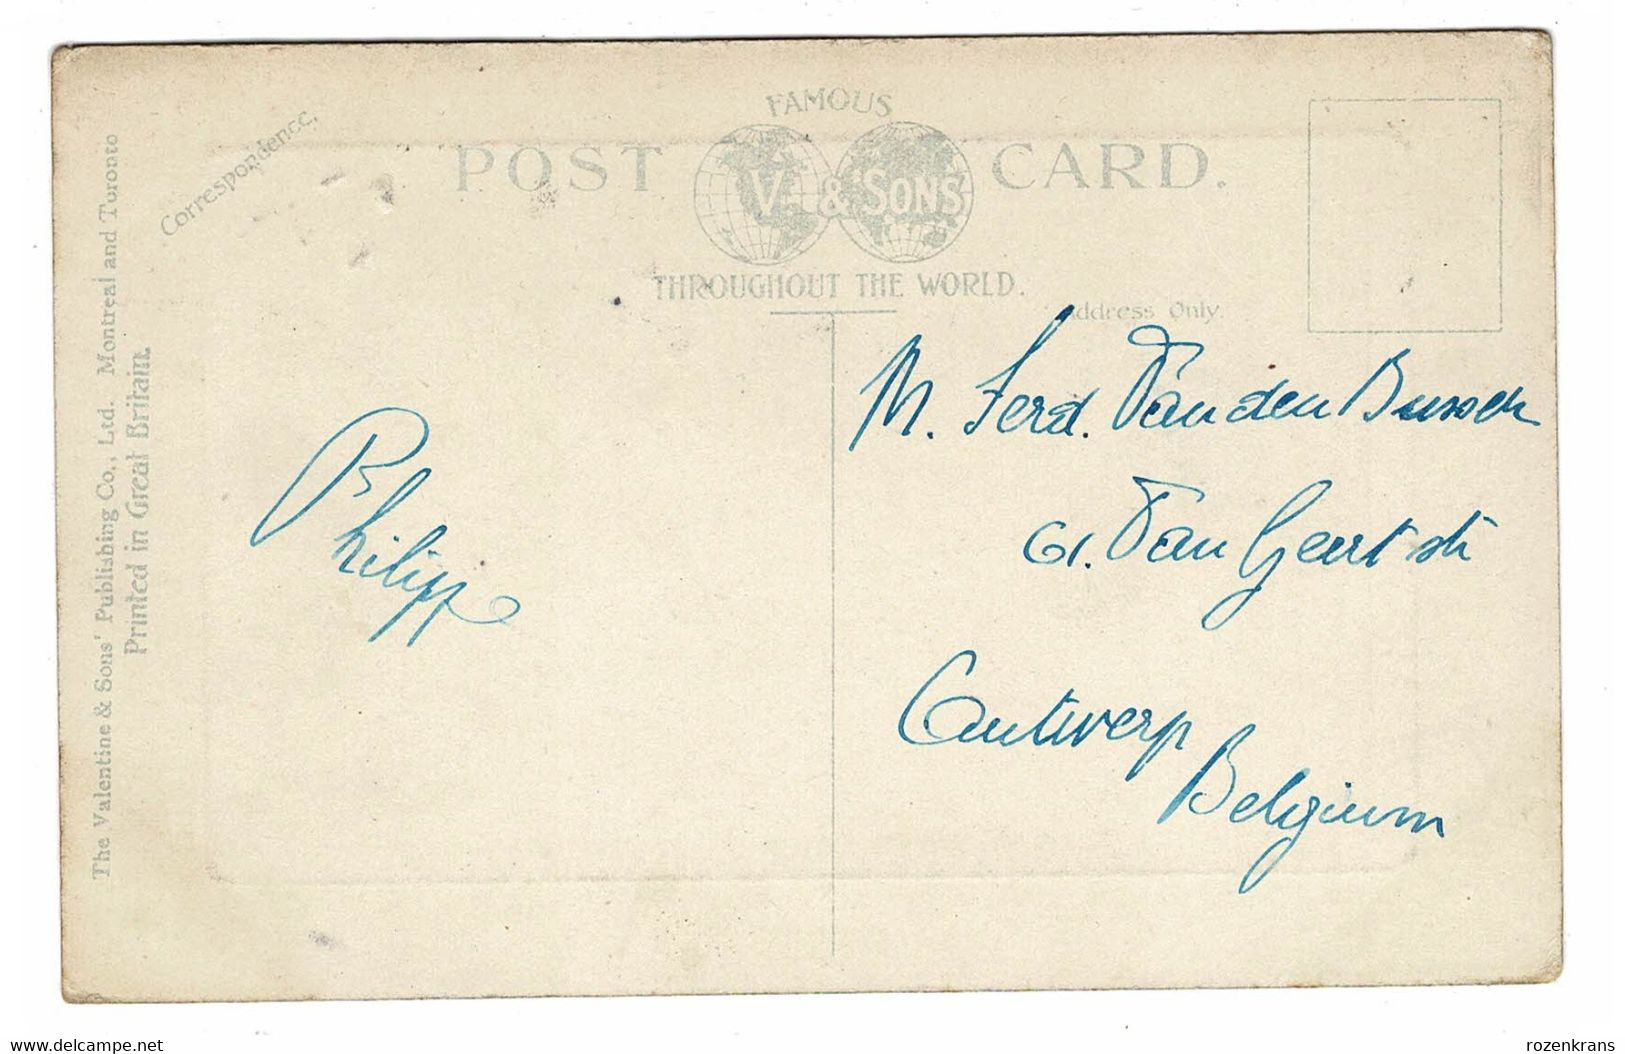 FAMOUS
POST CARD.
V. & SONS
THROUGHOUT THE WORLD.
Correspondence.
Address Only.
The Valentine & Sons' Publishing Co., Ltd. Montreal and Toronto
Printed in Great Britain.
Philippe
M. Ferd. Van den
61. Van Geert str
Antwerp
Belgium
www.delcampe.net
rozenkrans